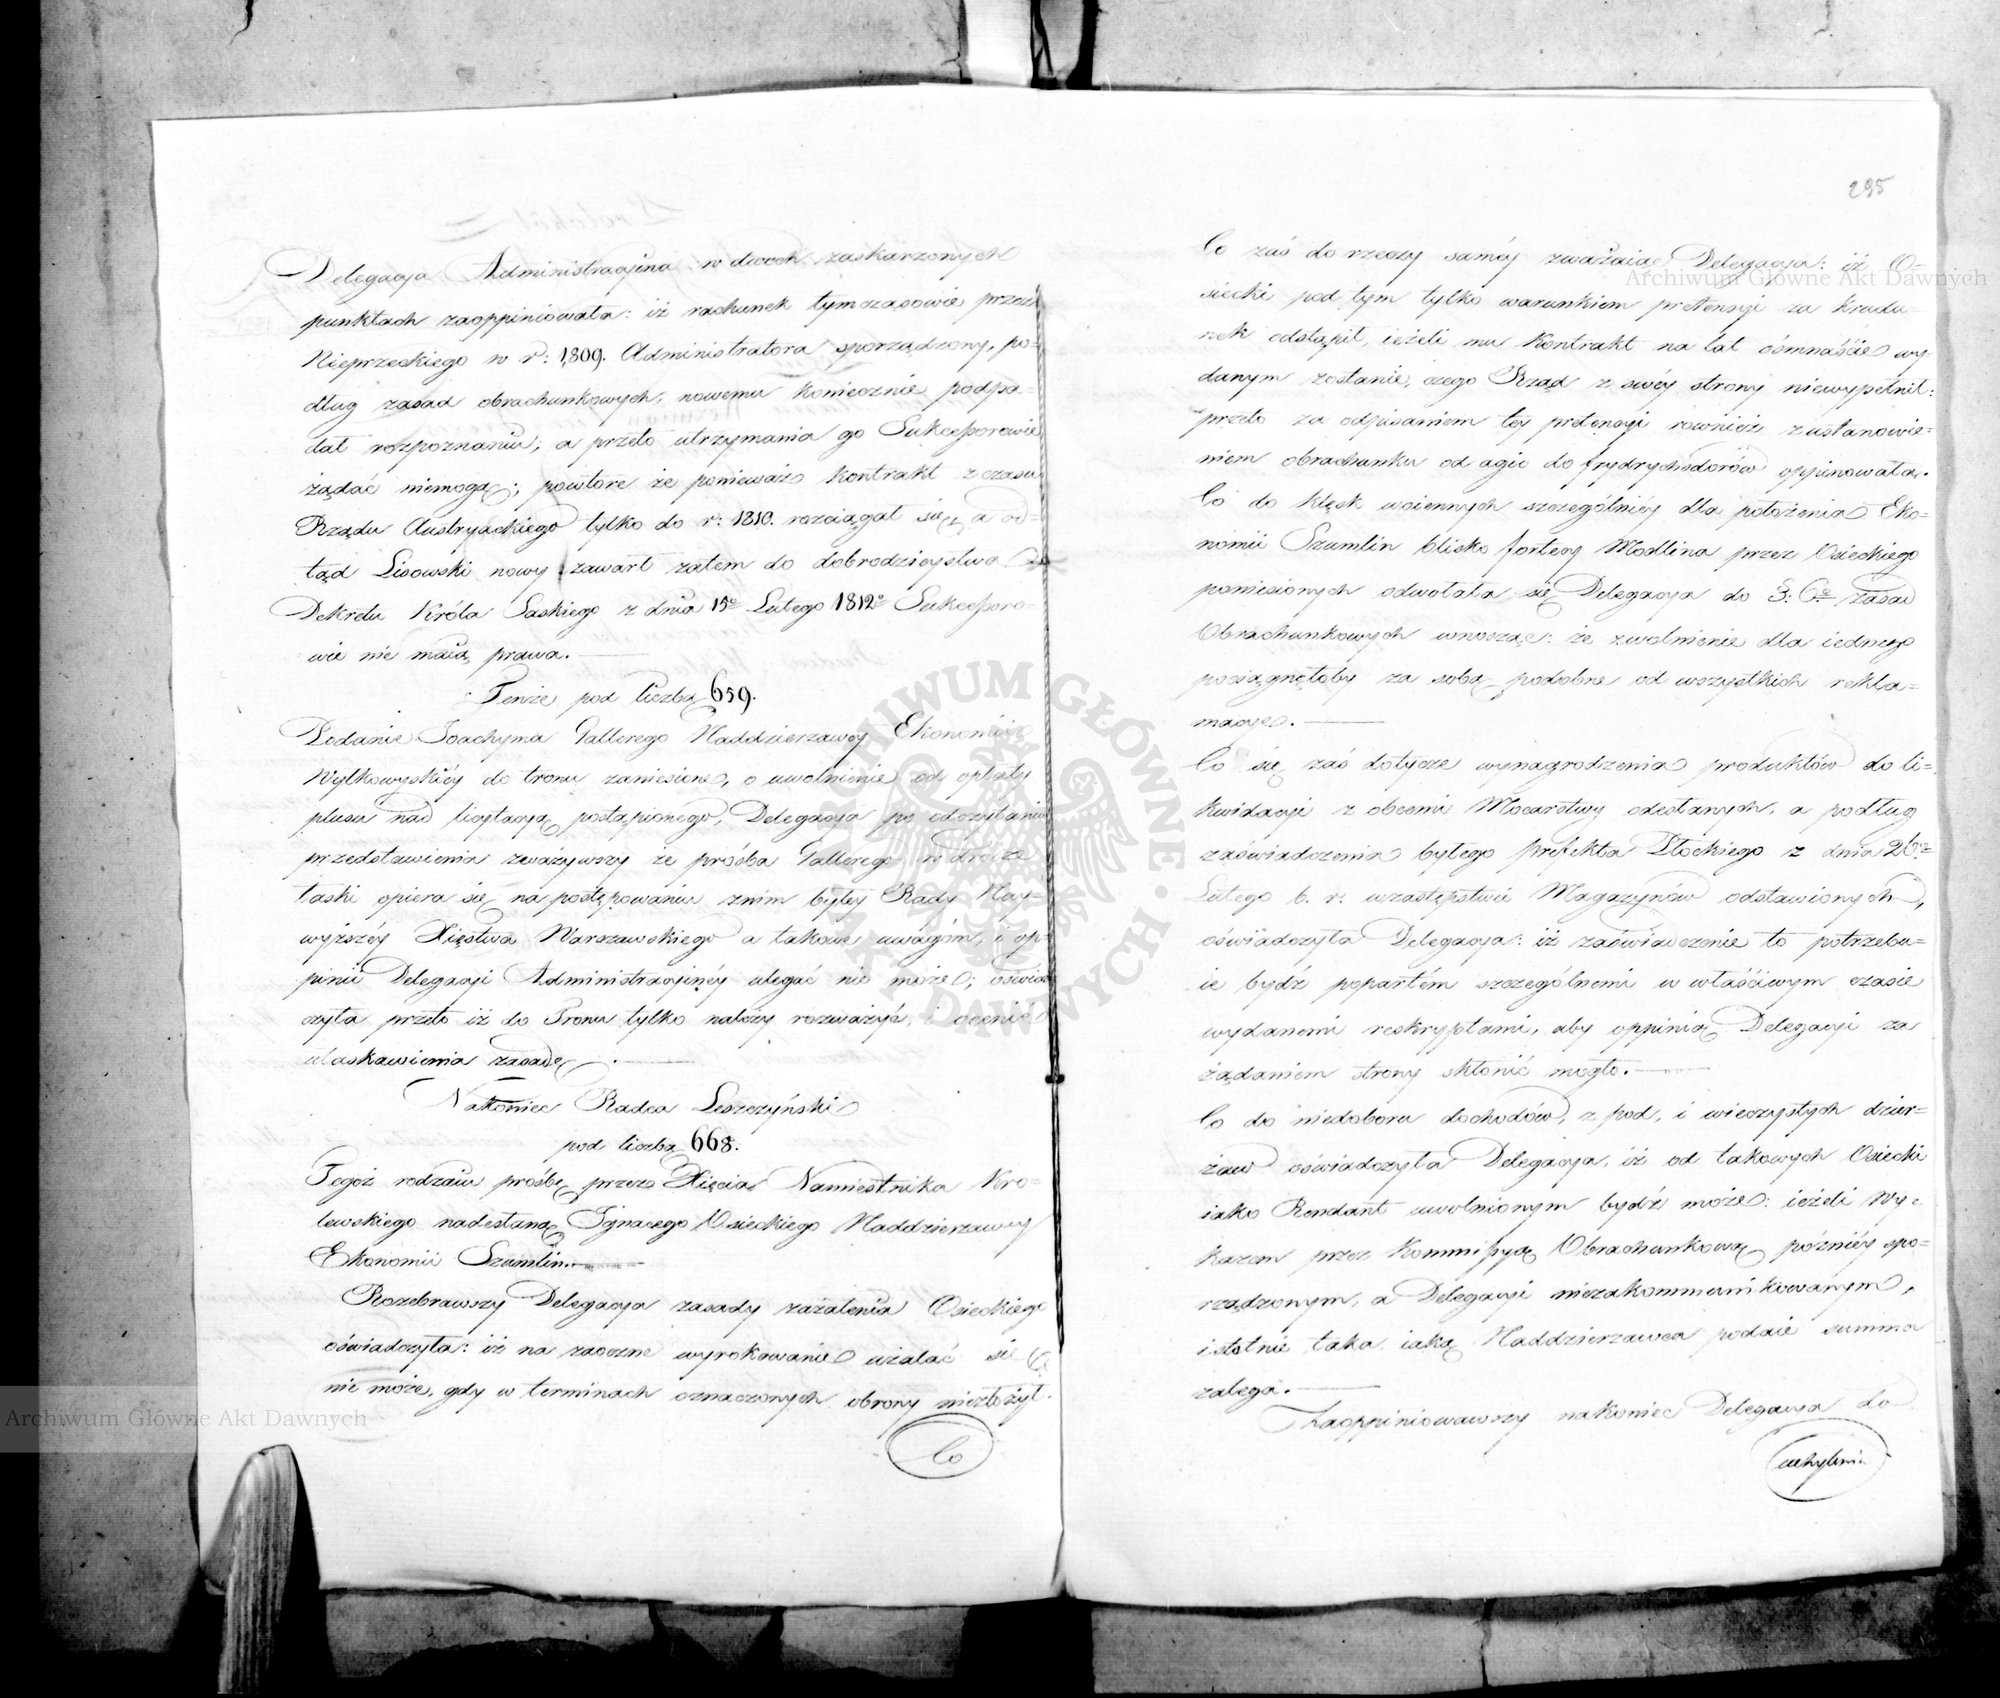 Delegacya Administracyina w dwoch zaskarzonych
punktach zaoppiniowała: iż rachunek tymczasowie przez
Nieprzeckiego w r: 1,809. Administratora sporządzony, po=
dług zasad obrachunkowych, nowemu koniecznie podpa=
dał rozpoznaniu; a przeto utrzymania go Sukcessorowie
żądać niemogą; powtore że ponieważ kontrakt z czasu
Rządu Austryackiego tylko do r: 1810. rozciągał się, a od=
tąd Lisowski nowy zawarł zatem do dobrodzieystwa
Dekretu Króla Saskiego z dnia 15º Lutego 1812º Sukcessoro=
wie nie maią prawa.
Tenże pod liczbą 659.
Podanie Joachyma Gallerego Naddzierzawcy Ekonomii
Wyłkowyskiéy do tronu zaniesione, o uwolnienie od opłaty
plusu nad licytacyą postąpionego, Delegacya po odczytaniu
przedstawienia zważywszy że prośba Gallerego w drodze
łaski opiera się na postępowaniu znim byłey Rady Nay=
wyższéy Xięstwa Warszawskiego a takowe uwagom, i op=
pinii Delegacyi Administracyinéy ulegać nie może; oświad
czyła przeto iż do Tronu tylko należy rozważyć, i ocenić
ułaskawienia zasadę.
Nakoniec Radca Leszczyński
pod liczbą 668.
Tegoż rodzaiu prośbę przez Xięcia Namiestnika Kro=
lewskiego nadesłaną Ignacego Osieckiego Naddzierzawcy
Ekonomii Szumlin.
Rozebrawszy Delegacya zasady zażalenia Osieckiego
oświadczyła: iż na zaoczne wyrokowanie użalać się
nie może, gdy w terminach oznaczonych obrony niezłożył.
Co
295
Co zaś do rzeczy saméy zważaiąc Delegacya: iż O=
siecki pod tym tylko warunkiem pretensyi za kradu=
nek odstąpił, ieżeli mu Kontrakt na lat ośmnaście wy=
danym zostanie, czego Rząd z swéy strony niewypełnił:
przeto za odpisaniem tey pretensyi rownież z ustanowie=
niem obrachunku od agio do frydrychsdorów oppinowała.
Co do klęsk woiennych szczególniéy dla położenia Eko=
nomii Szumlin blisko fortecy Modlina przez Osieckiego
poniesionych odwołała się Delegacya do §: 6º zasad
Obrachunkowych wnosząc: że zwolnienie dla iednego
pociągnęłoby za sobą podobne od wszystkich rekla=
macye.
Co się zaś dotycze wynagrodzenia produktów do li=
kwidacyi z obcemi Mocarstwy odesłanych, a podług
zaświadczenia byłego prefekta Płockiego z dnia 26º
Lutego b. r. wzastępstwie Magazynów odstawionych,
oświadczyła Delegacya: iż zaświadczenie to potrzebu=
ie bydź popartém szczególnemi w właściwym czasie
wydanemi reskryptami, aby oppinią Delegacyi za
żądaniem strony skłonić mogło.
Co do niedoboru dochodów, z pod, i wieczystych dzier=
żaw oświadczyła Delegacya, iż od takowych Osiecki
iako Rendant uwolnionym bydź może: ieżeli Wy=
kazem przez Kommissyą Obrachunkową późniéy spo=
rządzonym, a Delegacyi niezakommunikowanym,
istotnie taka iaką Naddzierzawca podaie summa
zalega.
Zaoppiniowawszy nakoniec Delegacya do
uchylenia
Archiwum Główne Akt Dawnych
Archiwum Główne Akt Dawnych
ARCHIWUM GŁÓWNE AKT DAWNYCH